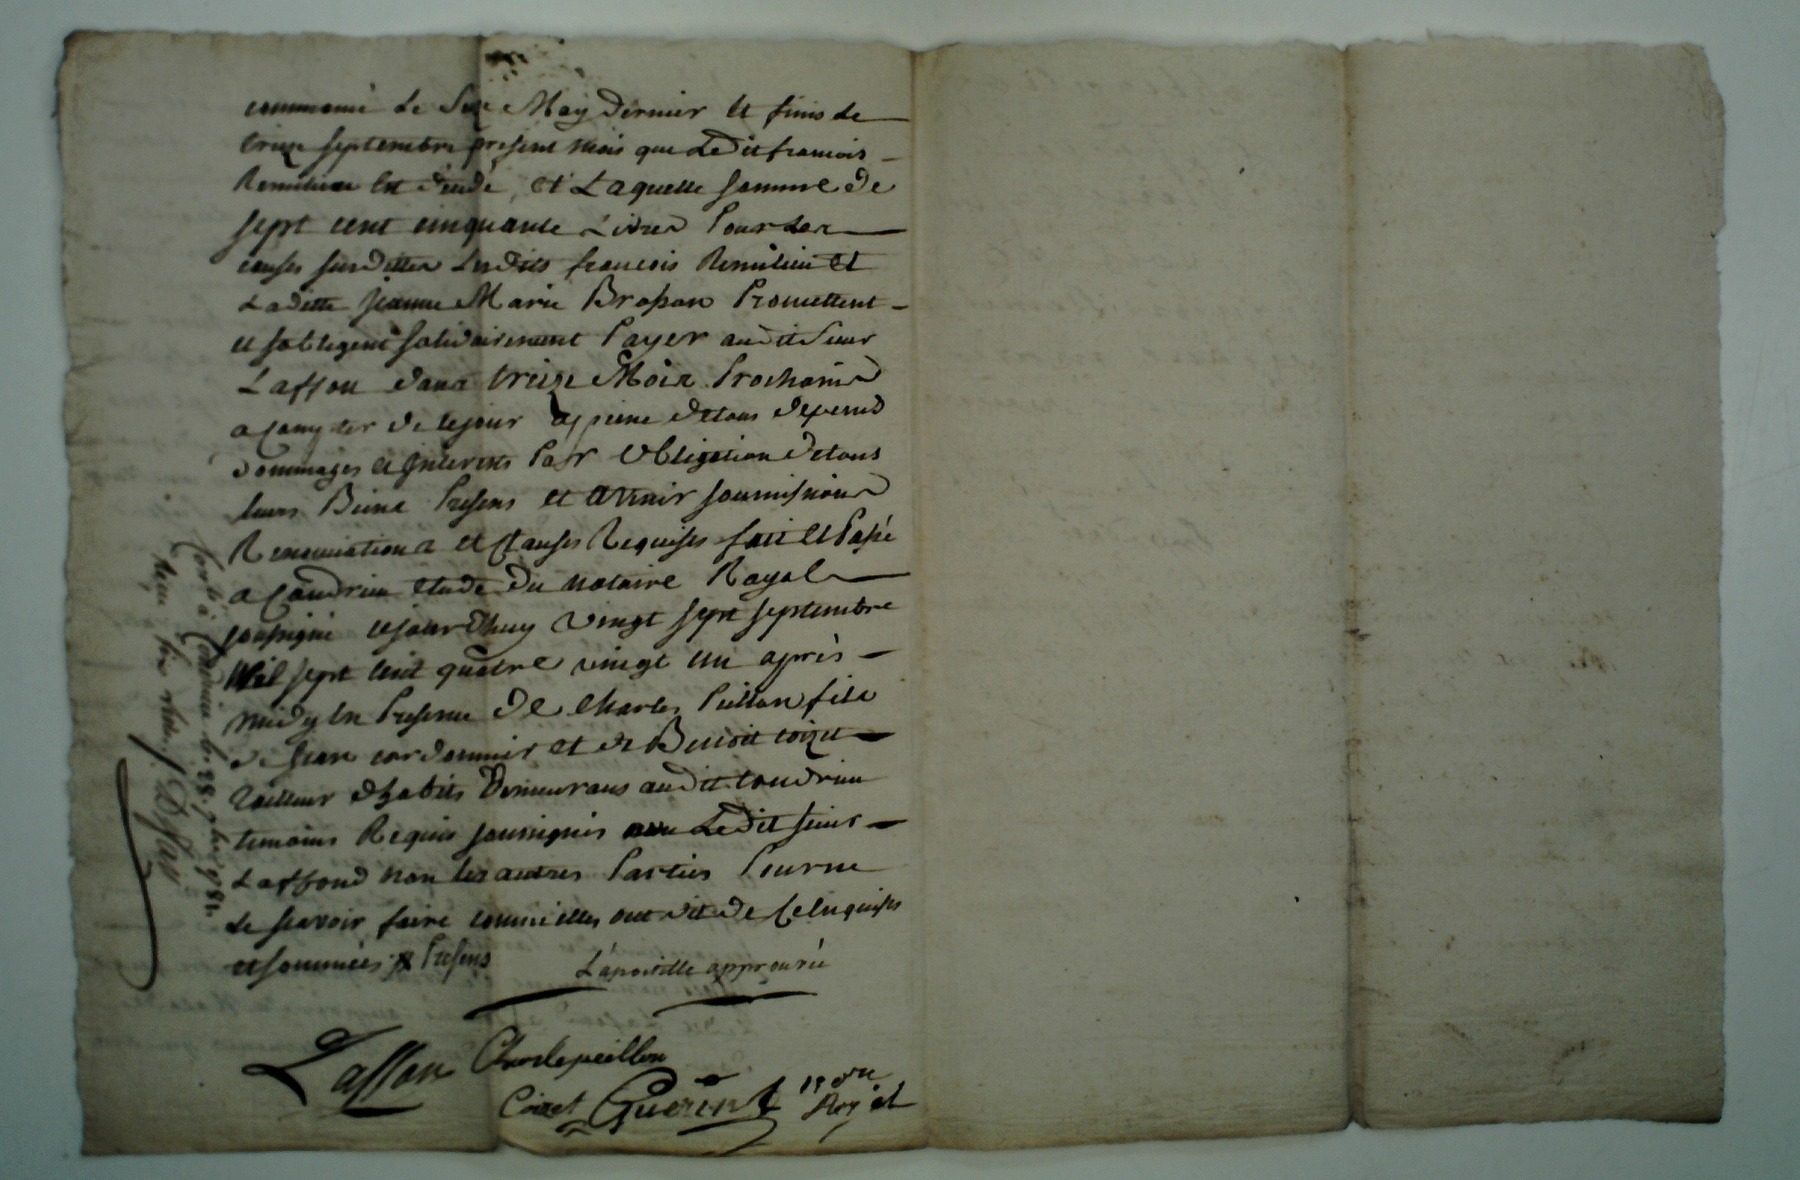 commancé le Six May dernier et finis le
treize septembre present mois que Ledit francois
Remilieux et Laquelle somme de
sept cent cinquante Livres Pour Les
causes susdittes Lesdits francois Remilieu et
Laditte jeanne Marie Brossan Promettent
et sobligent solidairement Payer audit sieur
Laffon dans treize Mois Prochains
a Compter de cejour a peine detous depends
dommages et jnterests Par Obligation detous
leurs Biens Presens et avenir soumissions
Renonciations et Clauses Requises fait et Passé
a Condrieu etude du notaire Royal
soussigné cejourdhuy vingt sept septembre
Mil sept cent quatre vingt un après
midy En Presence de Charles Peillon fils
de jean cordonnier et de Benoit Coizet
tailleur dhabits Demeurans audit Condrieu
temoins Requis soussignés avec Ledit sieur
Laffond non les autres Parties Pour ne
le scavoir faire comme elles ont dit de ce Enquises
et sommées Presens L'apostille approuvée
Laffon Charle peillon
Coizet Guerin Nore
Royal
Conlé à Condrieu le 28. 7bre 1781.
Reçu